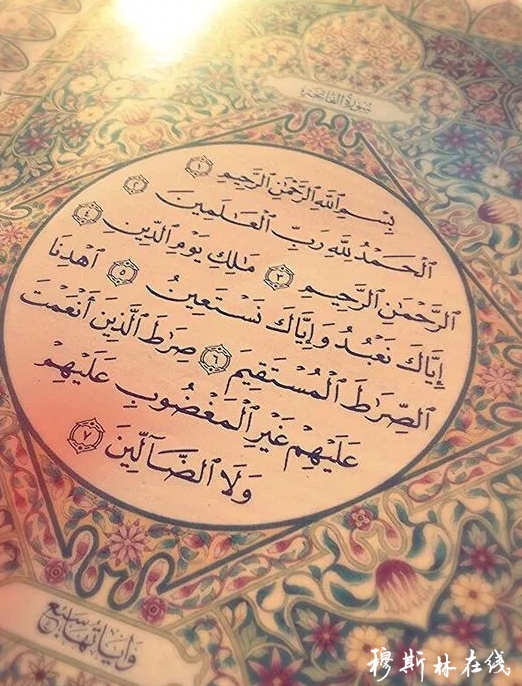 سُورَةُ الفَاتِحَةِ
بِسْمِ ٱللَّهِ ٱلرَّحْمَٰنِ ٱلرَّحِيمِ ١
ٱلْحَمْدُ لِلَّهِ رَبِّ ٱلْعَٰلَمِينَ ٢
ٱلرَّحْمَٰنِ ٱلرَّحِيمِ ٣ مَٰلِكِ يَوْمِ ٱلدِّينِ ٤
إِيَّاكَ نَعْبُدُ وَإِيَّاكَ نَسْتَعِينُ ٥ ٱهْدِنَا
ٱلصِّرَٰطَ ٱلْمُسْتَقِيمَ ٦ صِرَٰطَ ٱلَّذِينَ أَنْعَمْتَ
عَلَيْهِمْ غَيْرِ ٱلْمَغْضُوبِ عَلَيْهِمْ
وَلَا ٱلضَّآلِّينَ ٧
وَآيَاتُهَا سَبْعٌ
穆斯林在线